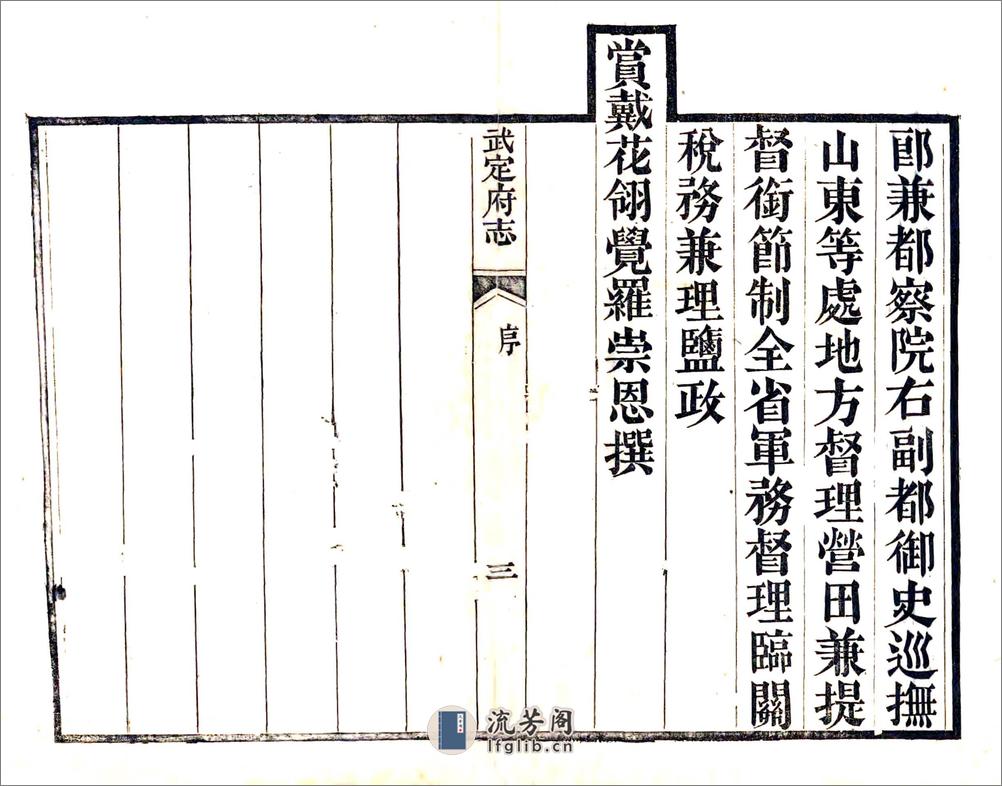 郎兼都察院右副都御史巡撫
山東等處地方督理營田兼提
督銜節制全省軍務督理臨關
稅務兼理鹽政
賞戴花翎覺羅崇恩撰
武定府志
序
三
流芳阁
lfglib.cn